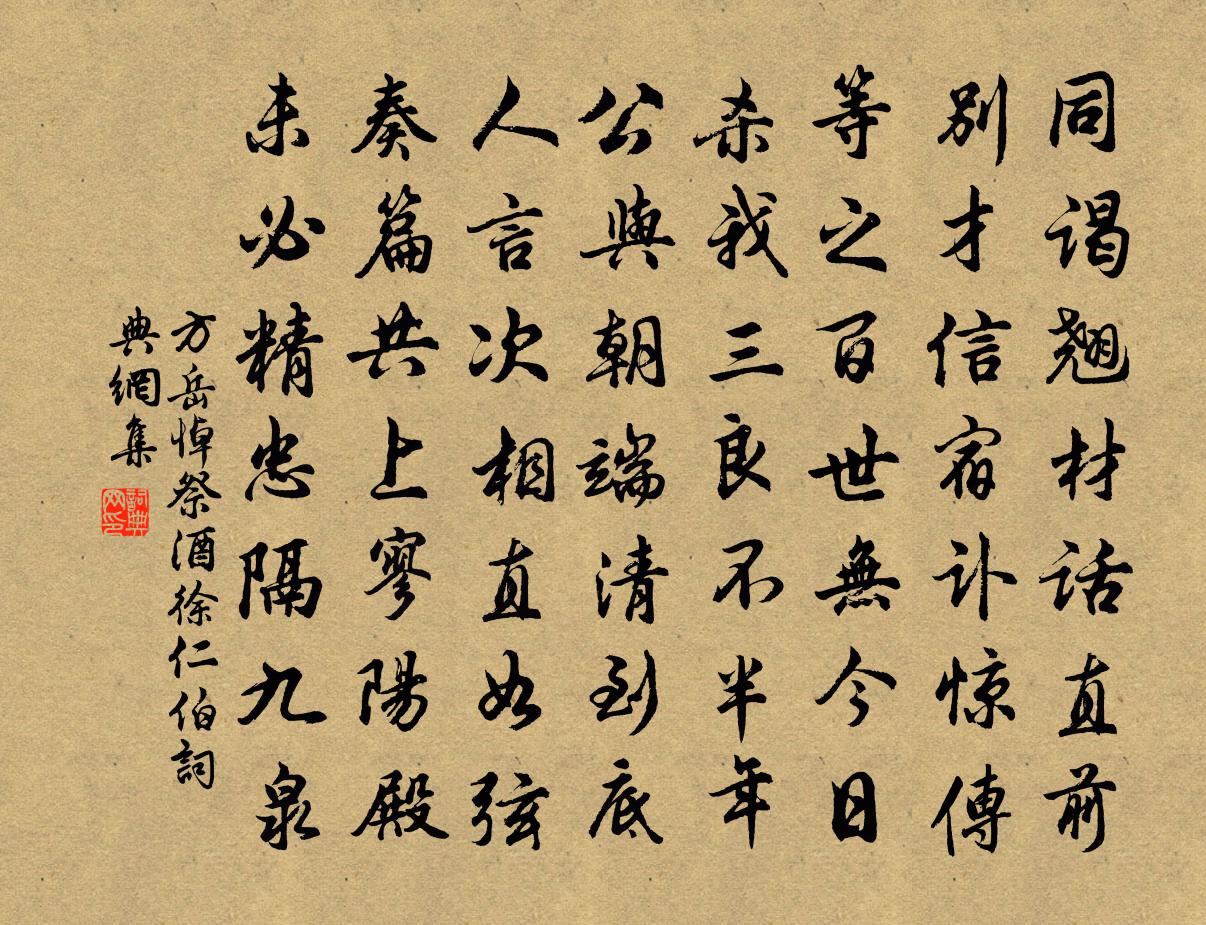 同谒翘材话直前
别才信宿讣惊傳
等之百世無今日
杀我三良不半年
公與朝端清到底
人言次相直如弦
奏篇共上寥陽殿
未必精忠隔九泉
方岳悼祭酒徐仁伯詞
典網集
詞典網印